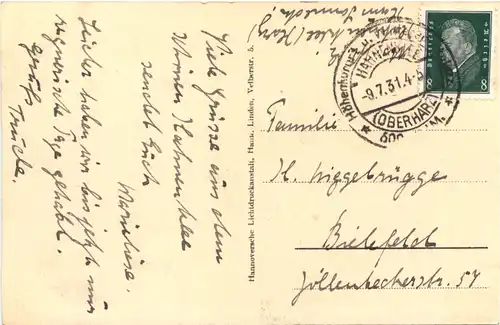 Viele Grüsse aus dem
schönen Hahnenklee
sendet Euch
Marieliese.
Leider haben wir bis jetzt nur
regnerische Tage gehabt.
Gruß
Hannoversche Lichtdruckanstalt, Hann. Linden, Velberstr. 5.
Hahnenklee (Harz)
Höhenkurort u.
HAHNENKLEE
-9.7.31.4-5
(OBERHARZ)
600
8 8
Familie
H. Niggebrügge
Bielefeld
Jöllenbeckerstr. 57